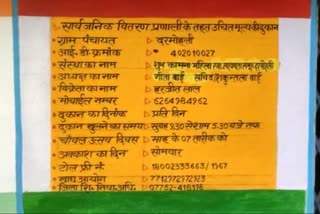 सार्वजनिक वितरण प्रणाली के तहत उचित मूल्य की दुकान
ग्राम पंचायत - दरमोहली
आई.डी. क्रमांक - 402010027
संस्था का नाम - शुभ कामना महिला
अध्यक्ष का नाम - गीता बाई सचिव शकुन्तला बाई
विक्रेता का नाम - हरजीत लाल
मोबाईल नम्बर - 6264984962
दुकान का दिनांक - प्रति दिन
दुकान खुलने का समय - सुबह 9.30 से शाम 5.30 बजे तक
चाँवल उत्सव दिवस - माह के 07 तारीख को
अवकाश का दिन - सोमवार
टोल फ्री नं. - 18002333663/1967
खाद्य आयोग - 771297297
07752-418178